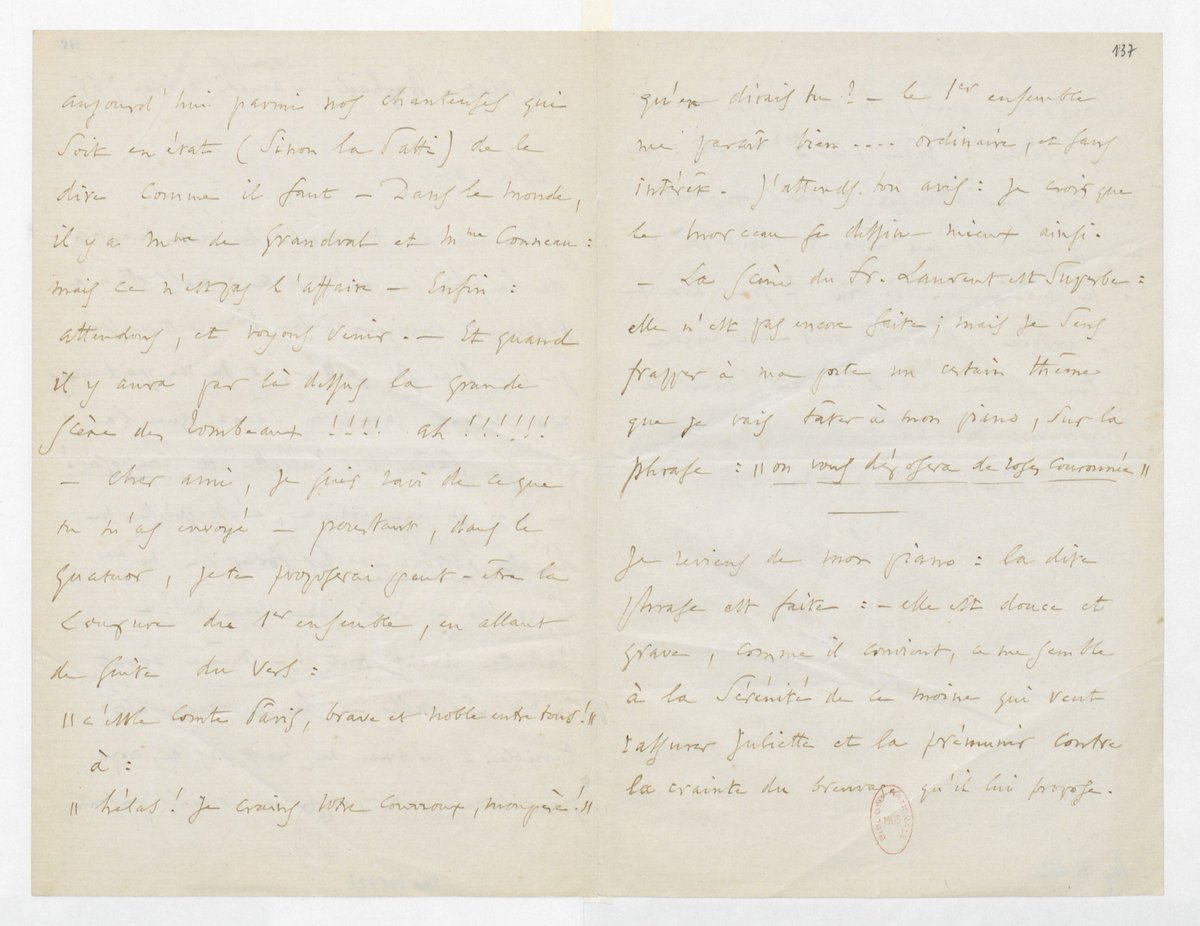 aujourd'hui parmi nos chanteuses qui
soit en état (sinon la Patti) de le
dire comme il faut — Dans le monde,
il y a Mme de Grandval et Mme Conneau :
mais ce n'est pas l'affaire — Enfin :
attendons, et voyons venir. — Et quand
il y aura par là dessus la grande
Scène des Tombeaux !!!! ah !!!!!!
— cher ami, je suis ravi de ce que
tu m'as envoyé — pourtant, dans le
quatuor, je te proposerai peut-être la
coupure du 1er ensemble, en allant
de suite du vers :
"c'est le comte Pâris, brave et noble entre tous!"
à :
"hélas! Je crains votre courroux, mon père!"
137
qu'en dirais tu? — le 1er ensemble
me paraît bien .... ordinaire, et sans
intérêt. J'attends ton avis : Je crois que
le morceau se dessine mieux ainsi.
— La Scène du Fr. Laurent est Superbe :
elle n'est pas encore faite ; mais je sens
frapper à ma porte un certain thème
que je vais tâter à mon piano, sur la
phrase : "on vous déposera de roses couronnée"
Je reviens de mon piano : la dite
phrase est faite : — elle est douce et
grave, comme il convient, ce me semble
à la Sérénité de ce moine qui veut
rassurer Juliette et la prémunir contre
la crainte du breuvage qu'il lui propose.